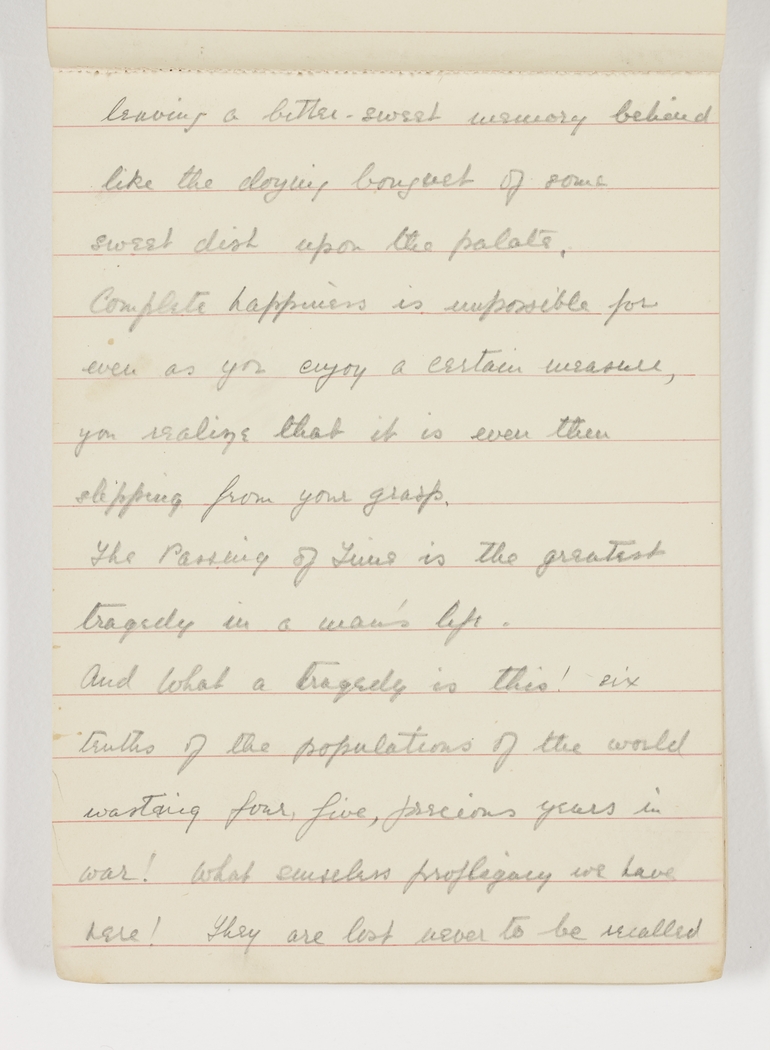 leaving a bitter-sweet memory behind
like the cloying bouquet of some
sweet dish upon the palate.
Complete happiness is impossible for
even as you enjoy a certain measure,
you realize that it is even then
slipping from your grasp.
The Passing of Time is the greatest
tragedy in a man's life.
And what a tragedy is this! six
tenths of the populations of the world
wasting four, five, precious years in
war! What senseless profligacy we have
here! They are lost never to be recalled